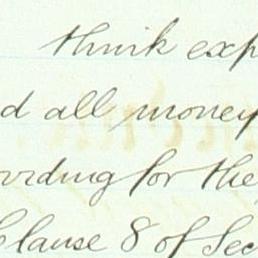 think exp
d all money
oviding for the
Clause 8 of Sec